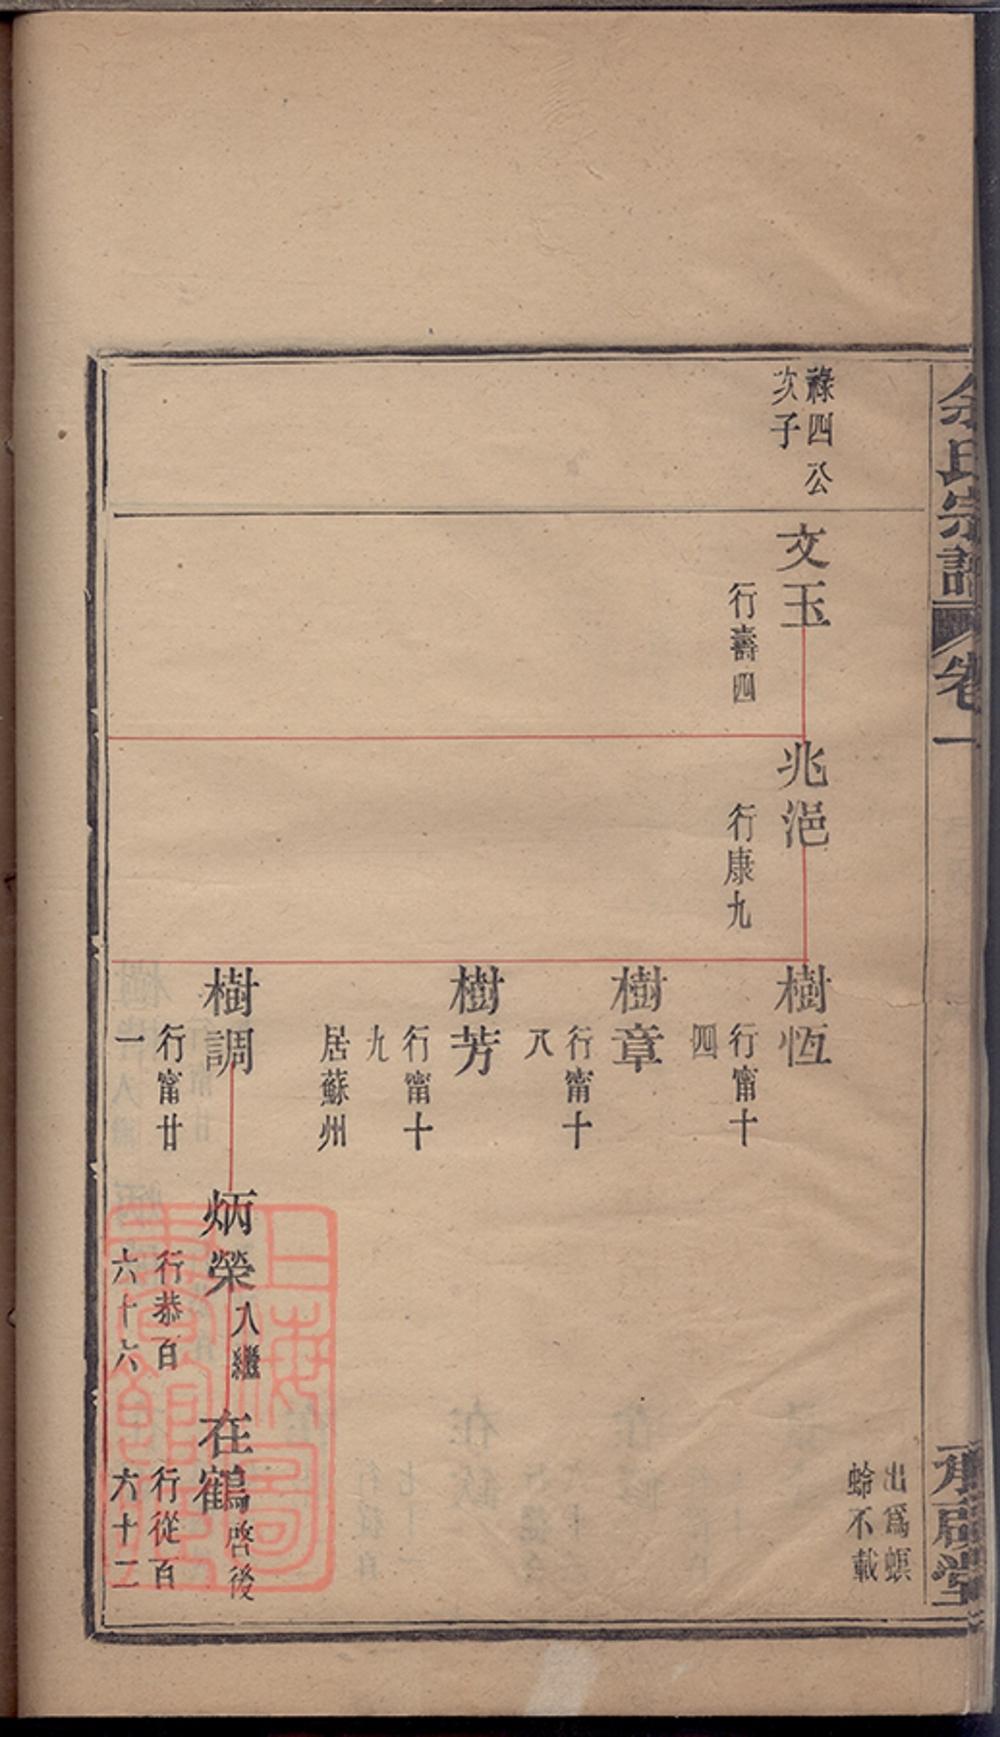 余氏宗譜 卷一
承啟堂
出爲螟
蛉不載
祿四公
次子
文玉
行壽四
兆浥
行康九
樹恆
行甯十
四
樹章
行甯十
八
樹芳
行甯十
九
居蘇州
樹調
行甯廿
一
炳榮 入繼
行恭百
六十六
在鶴 啓後
行從百
六十二
上海圖
書館藏